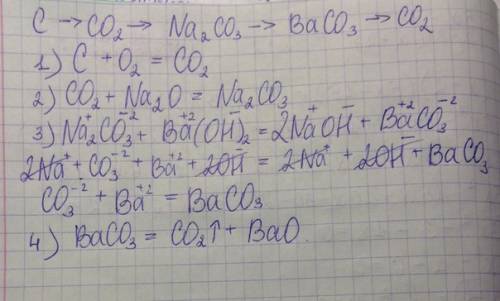 C → CO₂ → Na₂CO₃ → BaCO₃ → CO₂
1) C + O₂ = CO₂
2) CO₂ + Na₂O = Na₂CO₃
3) Na₂⁺CO₃⁻² + Ba⁺²(OH⁻)₂ = 2Na⁺OH⁻ + Ba⁺²CO₃⁻²
2Na⁺ + CO₃⁻² + Ba⁺² + 2OH⁻ = 2Na⁺ + 2OH⁻ + BaCO₃
CO₃⁻² + Ba⁺² = BaCO₃
4) BaCO₃ = CO₂↑ + BaO